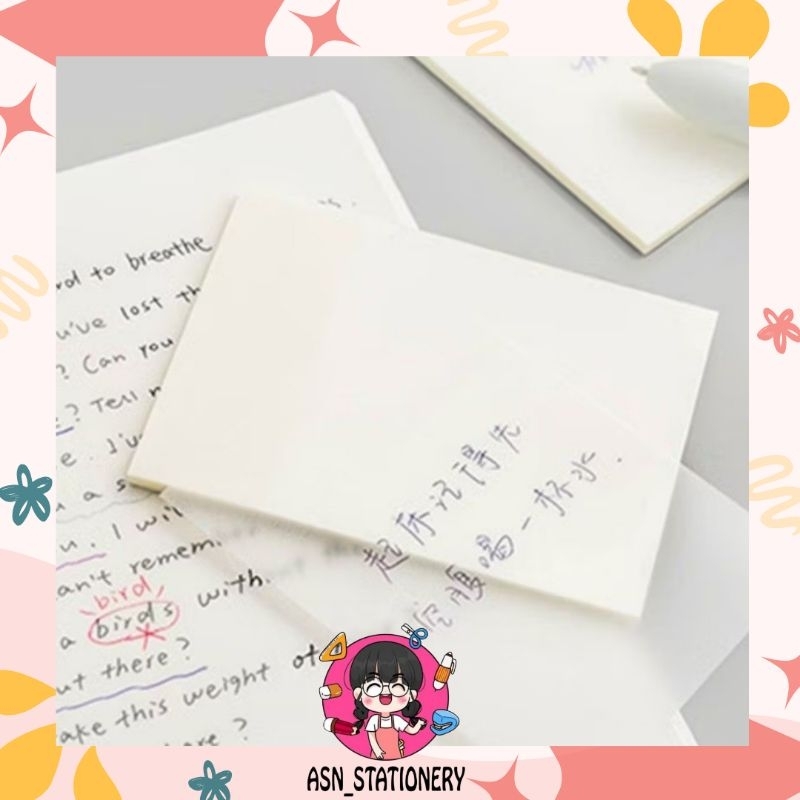 rd to breathe
u've lost th
? Can you
? Tell m
e. I'u
u a s
u. I wil
an't remem
bird
a birds with.
ut there?
ake this weight of
here?
起床记得先
空腹喝一杯水.
ASN_STATIONERY